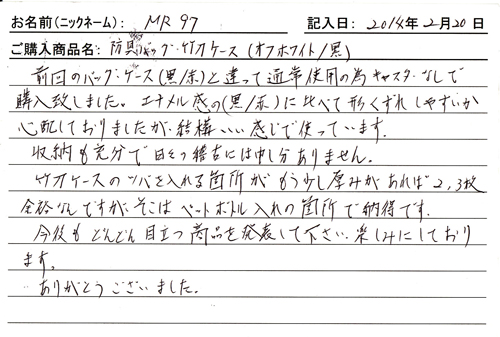 お名前(ニックネーム): MR 97 記入日: 2014年2月20日
ご購入商品名: 防具バッグ・竹刀ケース(オフホワイト/黒)
前回のバッグ・ケース(黒/赤)と違って通常使用の為キャスターなしで
購入致しました。エナメル感の(黒/赤)に比べて形くずれしやすいか
心配しておりましたが、結構いい感じで使っています。
収納も充分で日々の稽古には申し分ありません。
竹刀ケースのツバを入れる箇所がもう少し厚みがあれば2,3枚
余裕なんですが、そこはペットボトル入れの箇所で納得です。
今後もどんどん目立つ商品を発表して下さい。楽しみにしており
ます。
ありがとうございました。